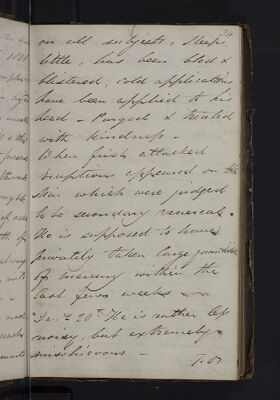 24
on all subjects, sleeps
little, has been bled &
blistered, cold applications
have been applied to his
head - Purged & treated
with kindness -
When first attacked
eruptions appeared on the
skin which were judged
to be secondary venereal -
He is supposed to have
privately taken large quantities
of mercury within the
last few weeks -
Jany 20th He is rather less
noisy, but extremely
mischievous -
T.O.